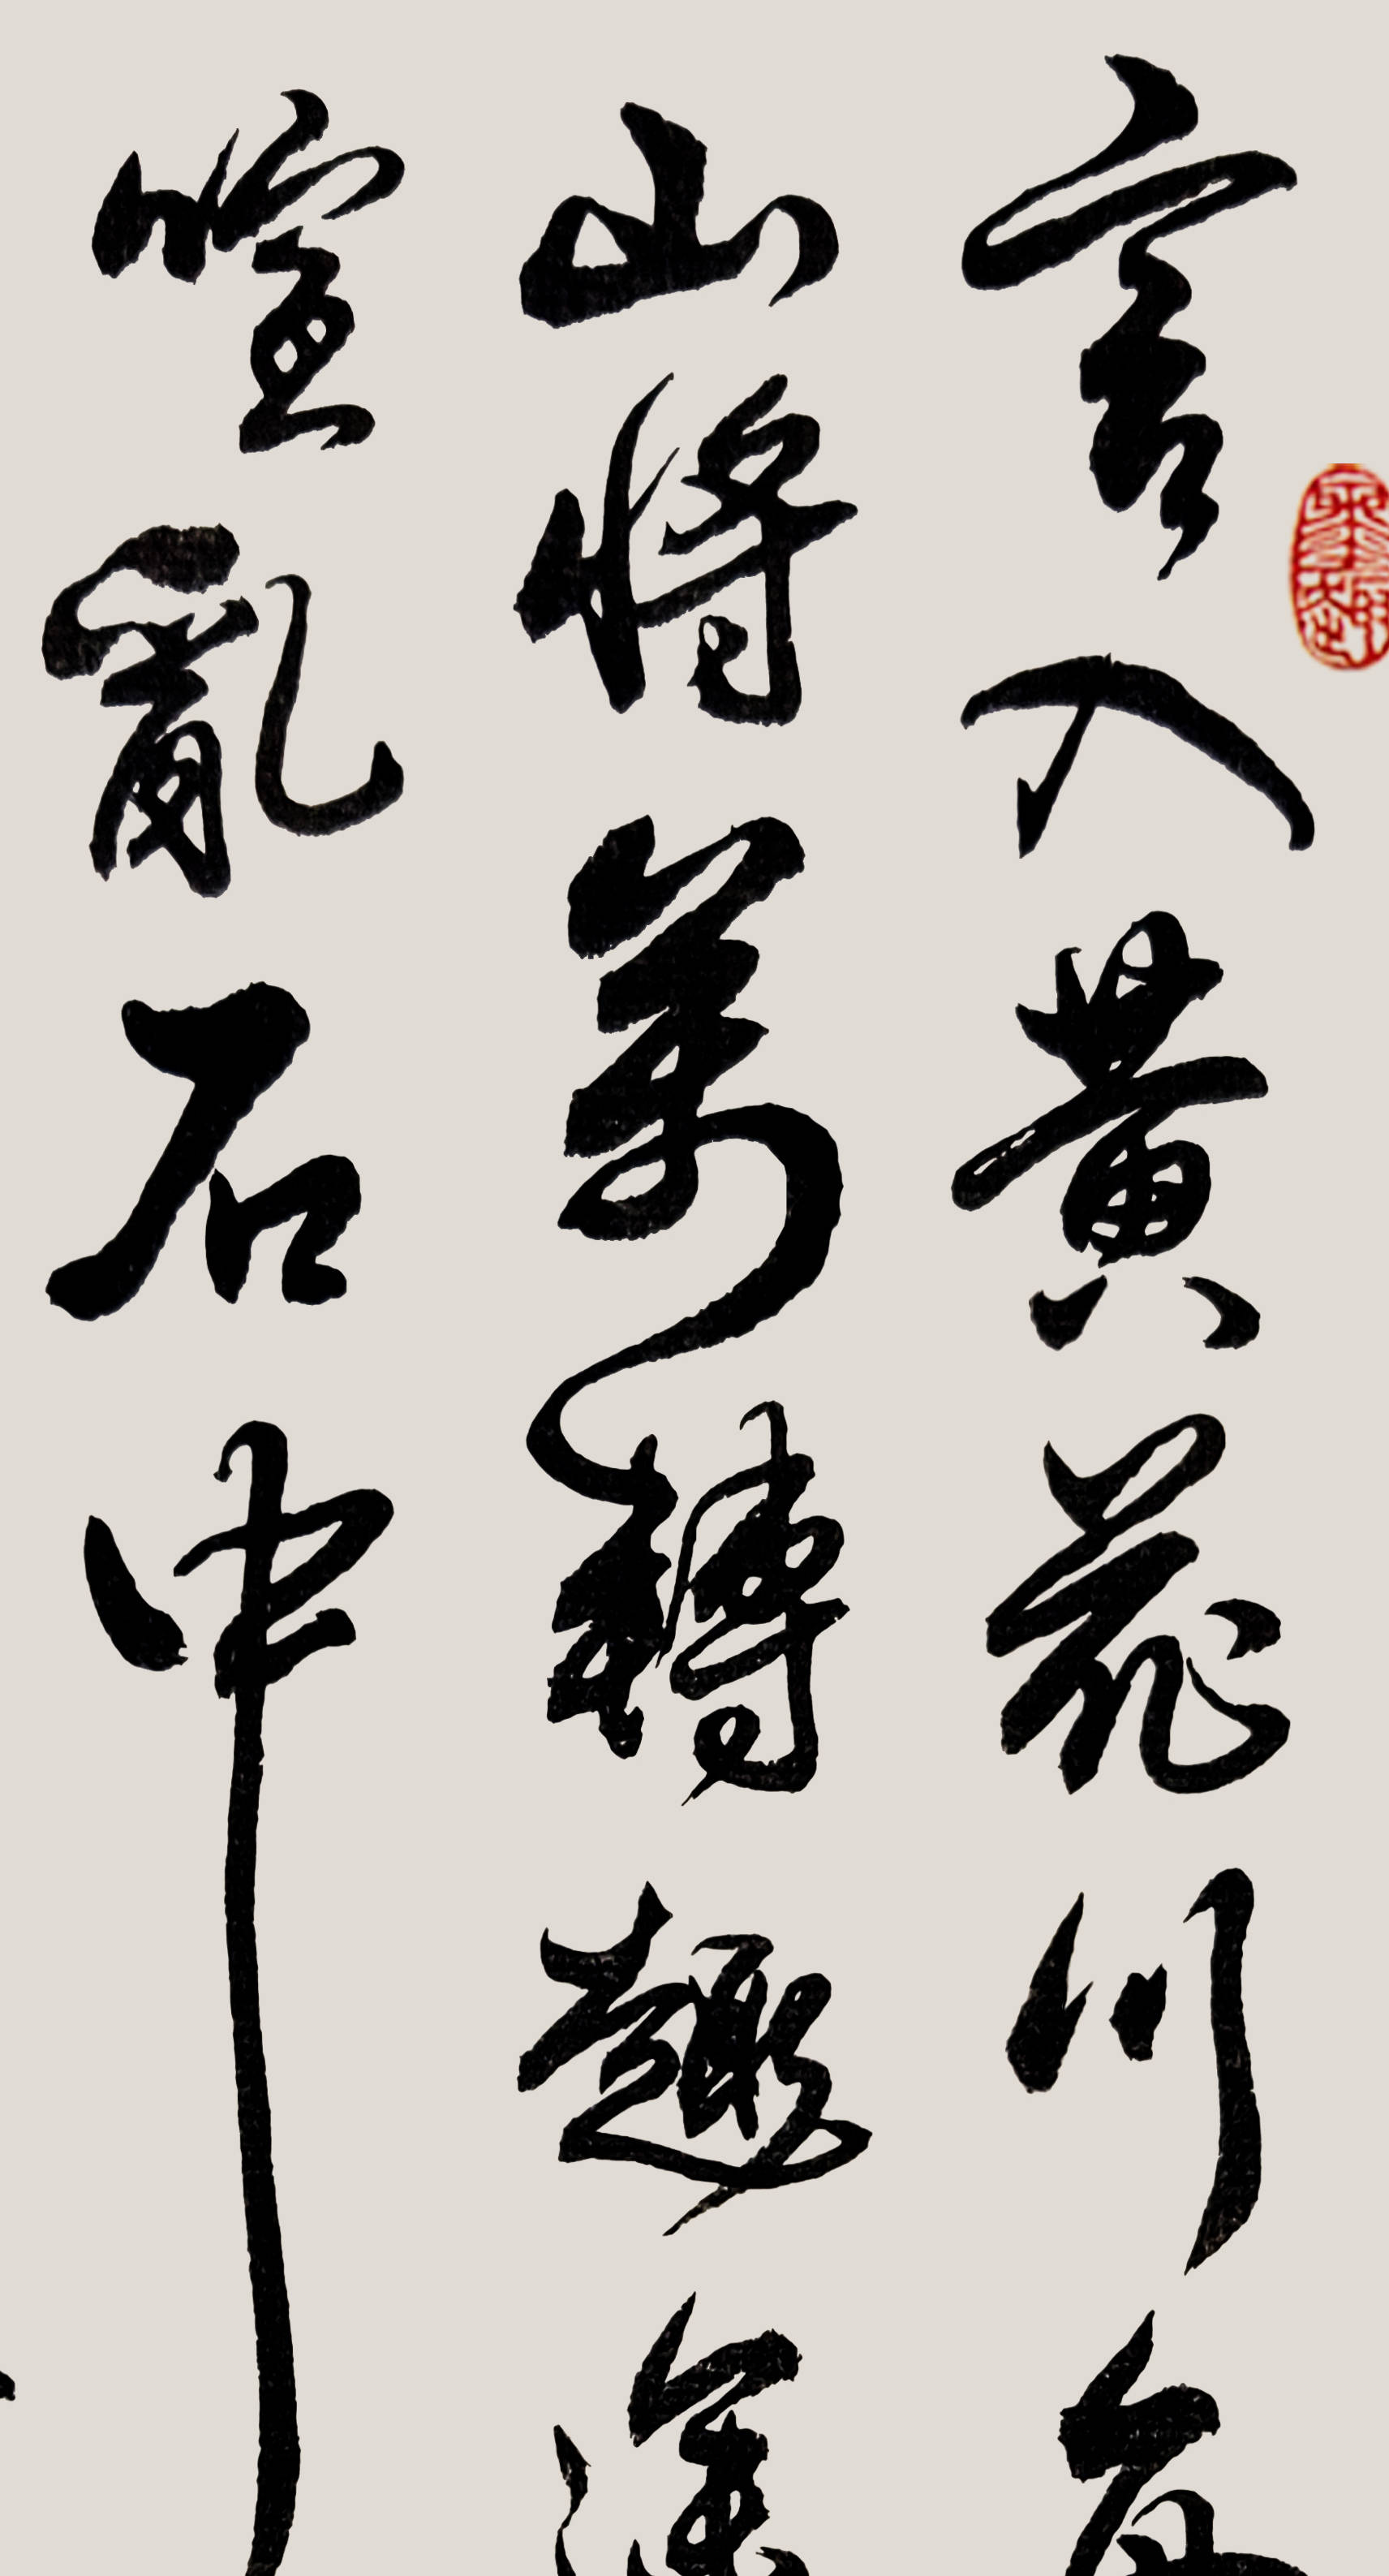 言入黃花川每
山將萬轉趣途
喧亂石中